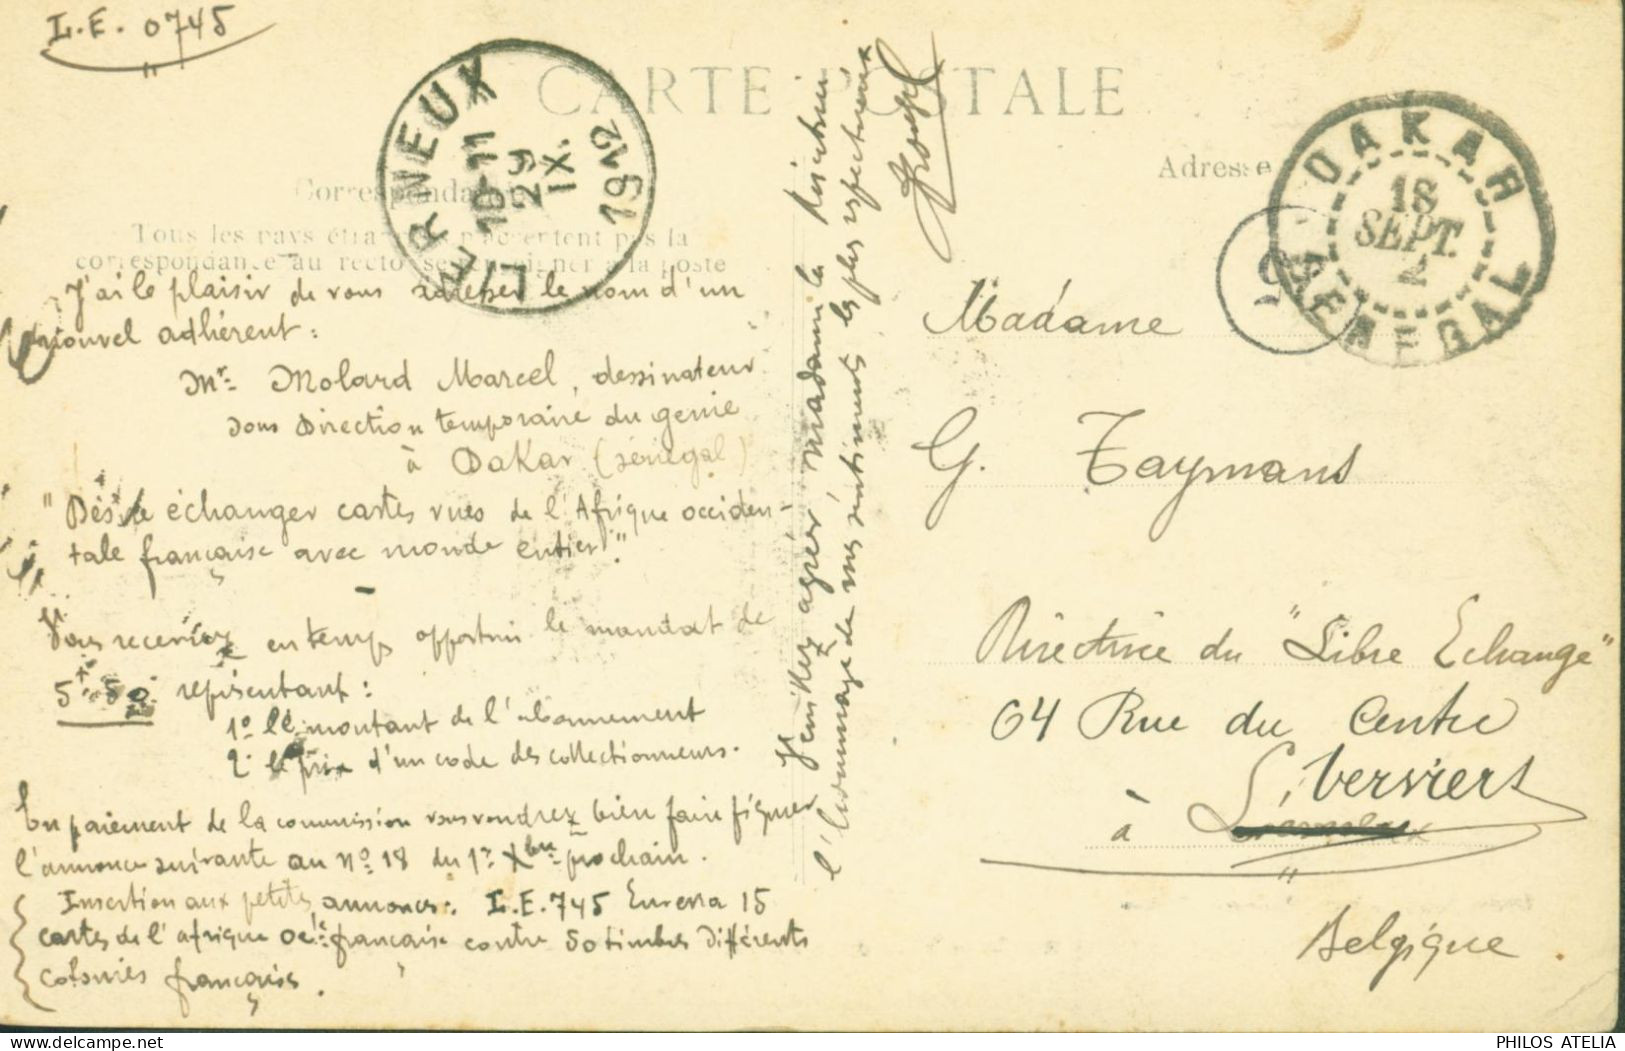 L.E. 0745
CARTE POSTALE
Correspondance
Tous les pays étrangers n'acceptent pas la
correspondance au recto se renseigner à la poste
LIERNEUX
10-11
29
IX.
1912
Adresse
DAKAR
18
SEPT.
SENEGAL
5
J'ai le plaisir de vous adresser le nom d'un
nouvel adhérent :
Mr. Molard Marcel, dessinateur
sous Direction temporaire du génie
à Dakar (sénégal)
"Désire échanger cartes vues de l'Afrique occiden-
tale française avec monde entier."
Vous recevrez en temps opportun le mandat de
5f. 50 représentant :
1º le montant de l'abonnement
2º le prix d'un code des collectionneurs.
En paiement de la commission vous voudrez bien faire figurer
l'annonce suivante au nº 18 du 1er Xbre prochain.
Insertion aux petites annonces : L.E. 745 Envena 15
cartes de l'afrique occle française contre 50 timbres différents
colonies françaises.
Veuillez agréer Madame la Directrice
l'hommage de mes sentiments les plus respectueux
Madame
G. Taymans
Directrice du "Libre Echange"
64 Rue du Centre
à Verviers
Belgique
PHILOS ATELIA